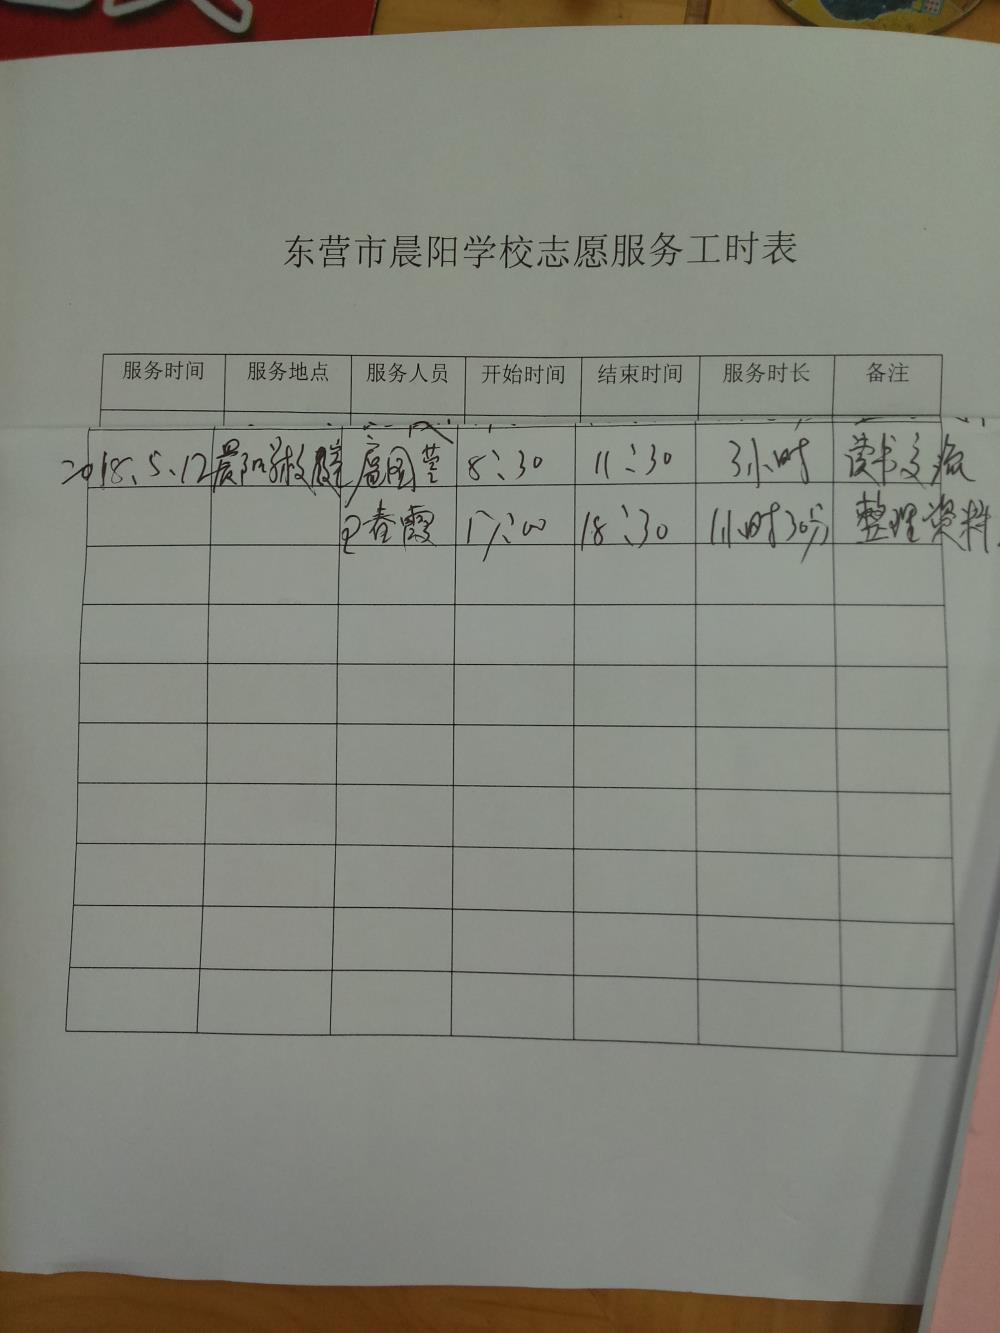 东营市晨阳学校志愿服务工时表
服务时间 服务地点 服务人员 开始时间 结束时间 服务时长 备注
2018.5.12 晨阳学校 8:30 11:30 3小时 读书交流
春霞 17:00 18:30 1小时30分 整理资料